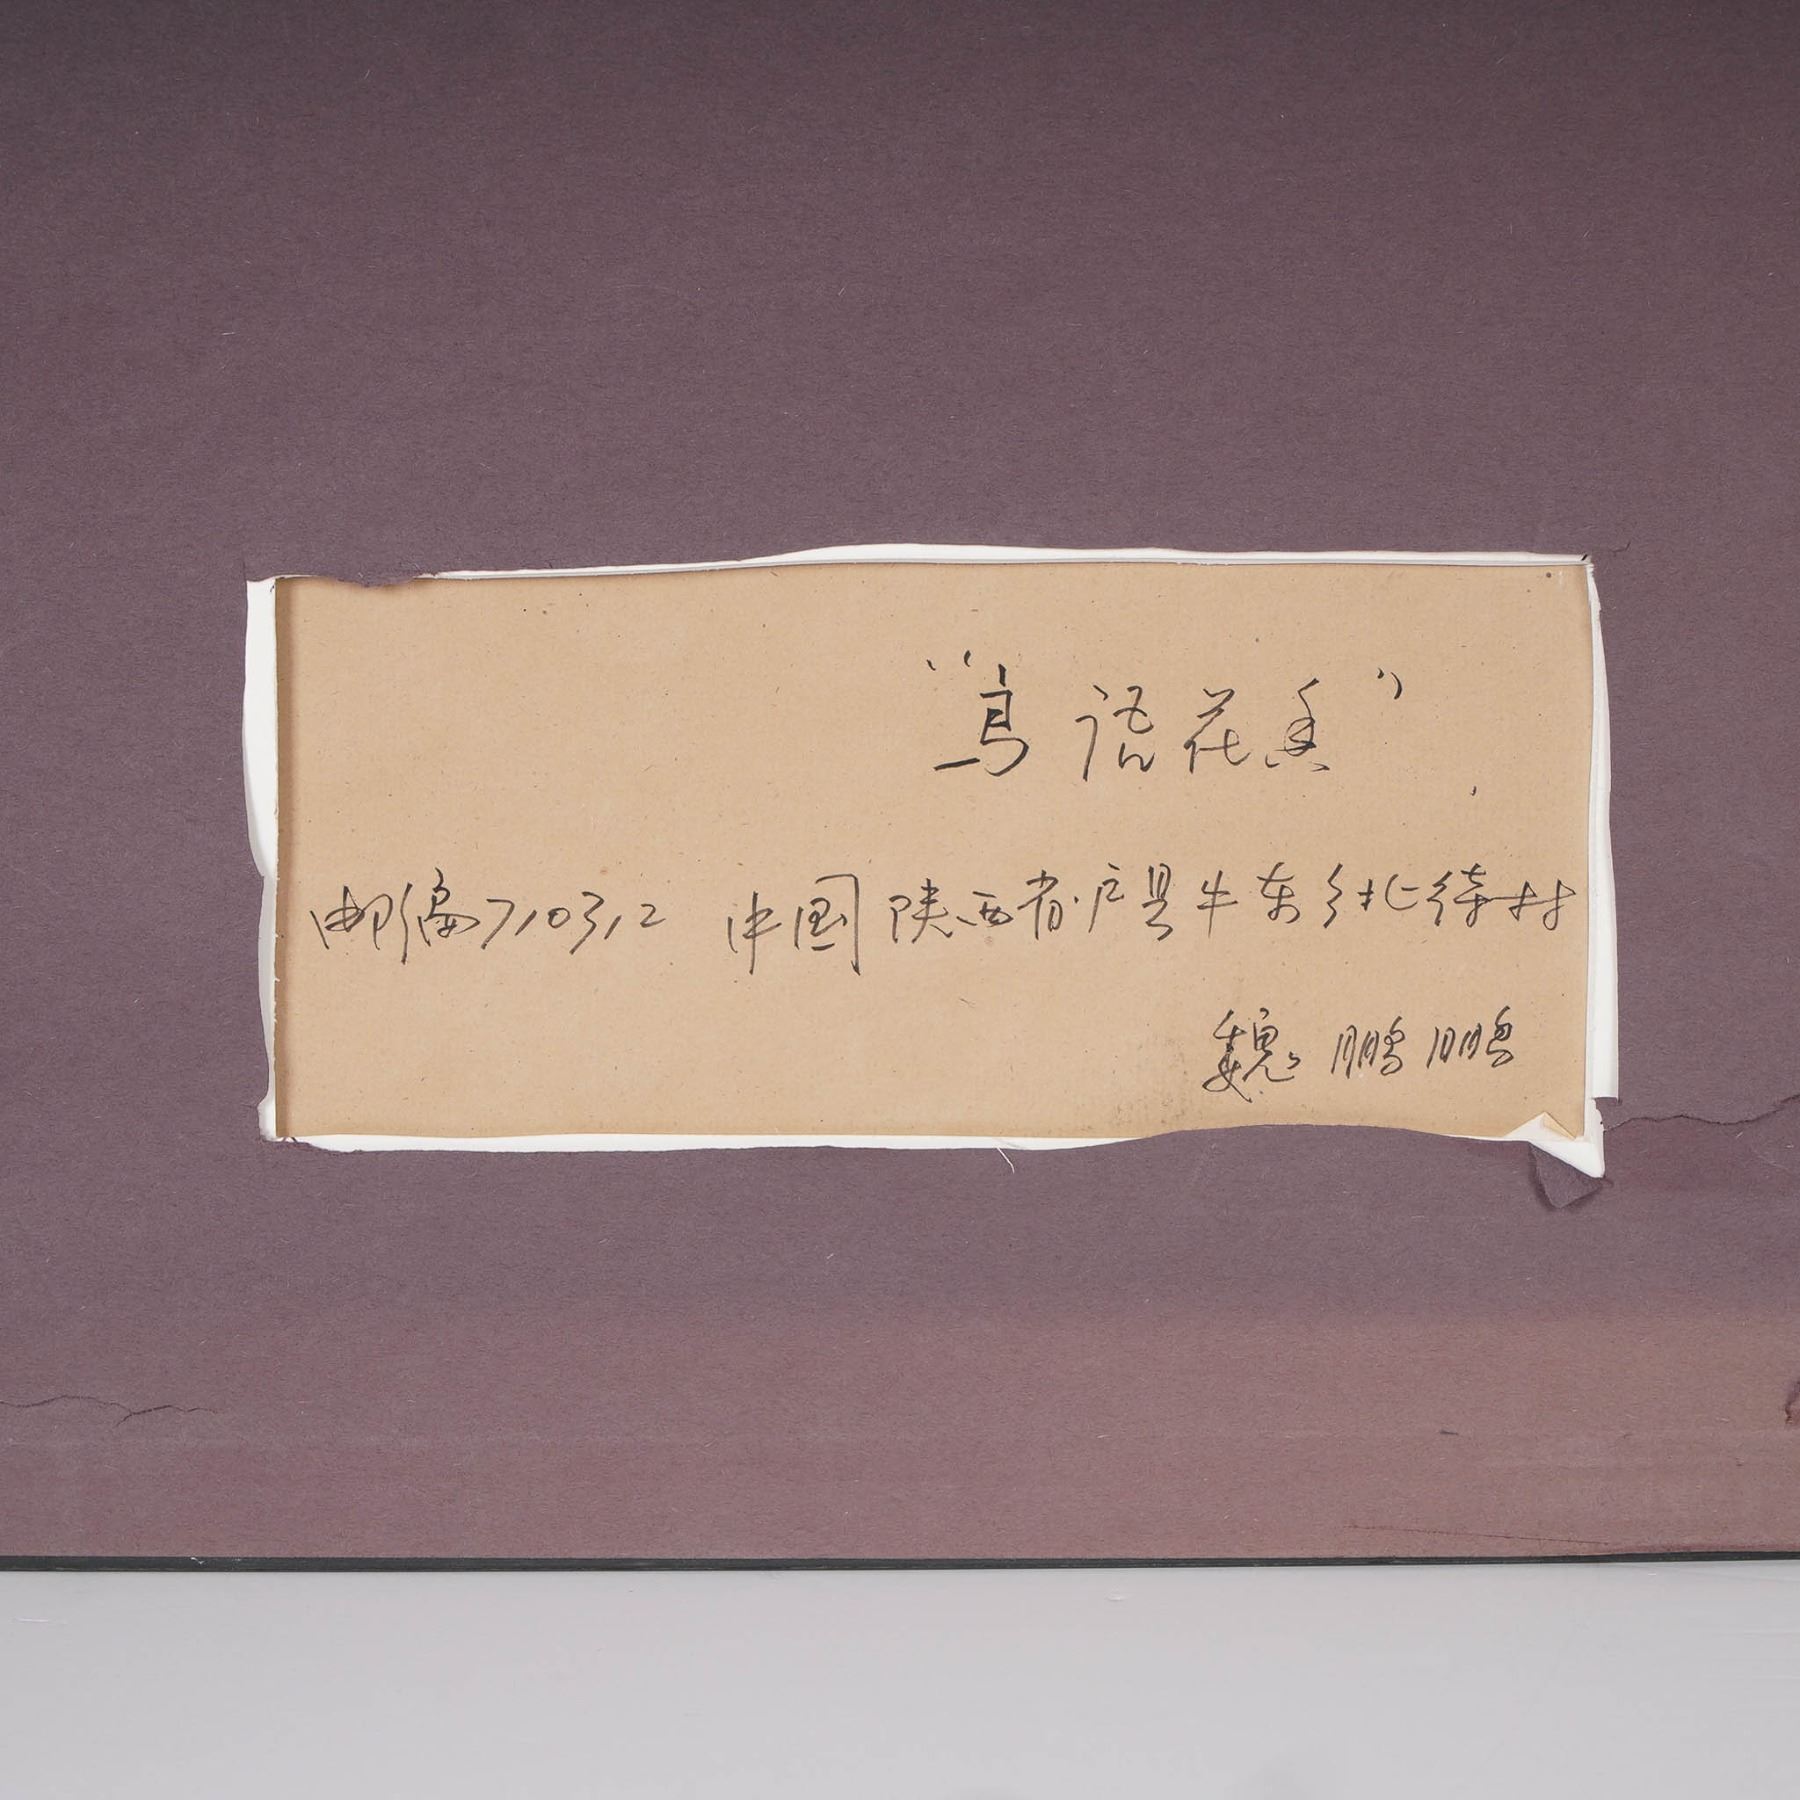 “鸟语花香”
邮编710312 中国陕西省户县牛东乡北待村
魏鹏鹏